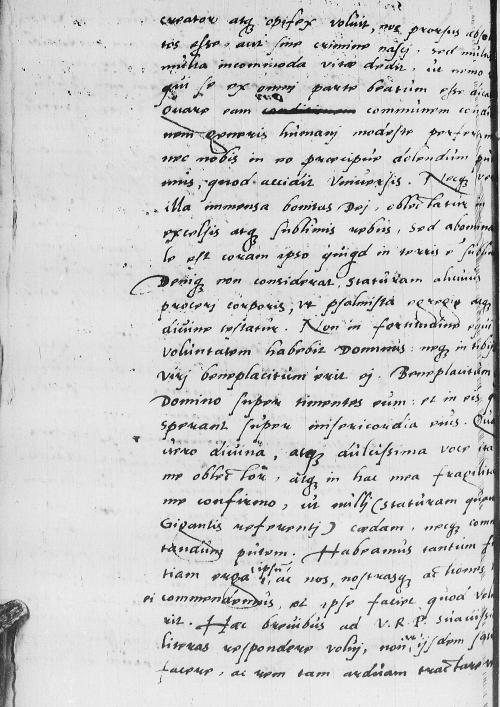 creator atq; opifex voluit, nos prorsus abso
tos esse, aut sine crimine nasci, sed multa
multa incommoda vitae dedit, ut nemo
qui se ex omni parte beatum esse dica
Quare eam communem condi
nem generis humani modeste perferam
nec nobis in eo praecipue dolendum pu
mus, quod accidit Vniversis. Neq;
illa immensa bonitas Dei, oblectatur in
excelsis atq; sublimis rebus, sed abomina
le est coram ipso quiqd in terris e subli
Deniq; non considerat staturam alicuius
proceri corporis, vt psalmista egregie atq;
divine testatur. Non in fortitudine equi
voluntatem habebit Dominus: neq; in tibijs
viri beneplacitum erit ei. Beneplacitum
Domino super timentes eum: et in eis q
sperant super misericordia eius. Qua
vero divina, atq; dulcissima voce ita
me oblector, atq; in hac mea fragilita
me confirmo, ut nulli (staturam quam
Gigantis referenti) caedam, neq; com
tandum putem. Habeamus tantum fi
tiam erga ipsum, ac nos, nostrasq; actiones
ei commendemus, et ipse faciet quod vol
rit. Haec brevibus ad V. R. P. suaviss
literas respondere volui, non ijsdem
facere, ac rem tam arduam tractare